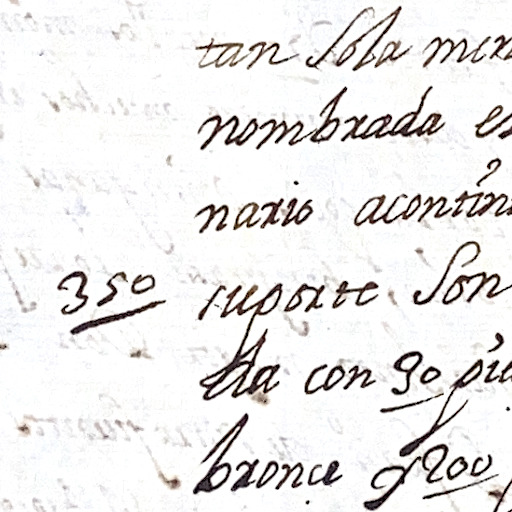 tan sola men
nombrada es
nario acontin
350 suporte son
da con 90 pie
bronce y 200